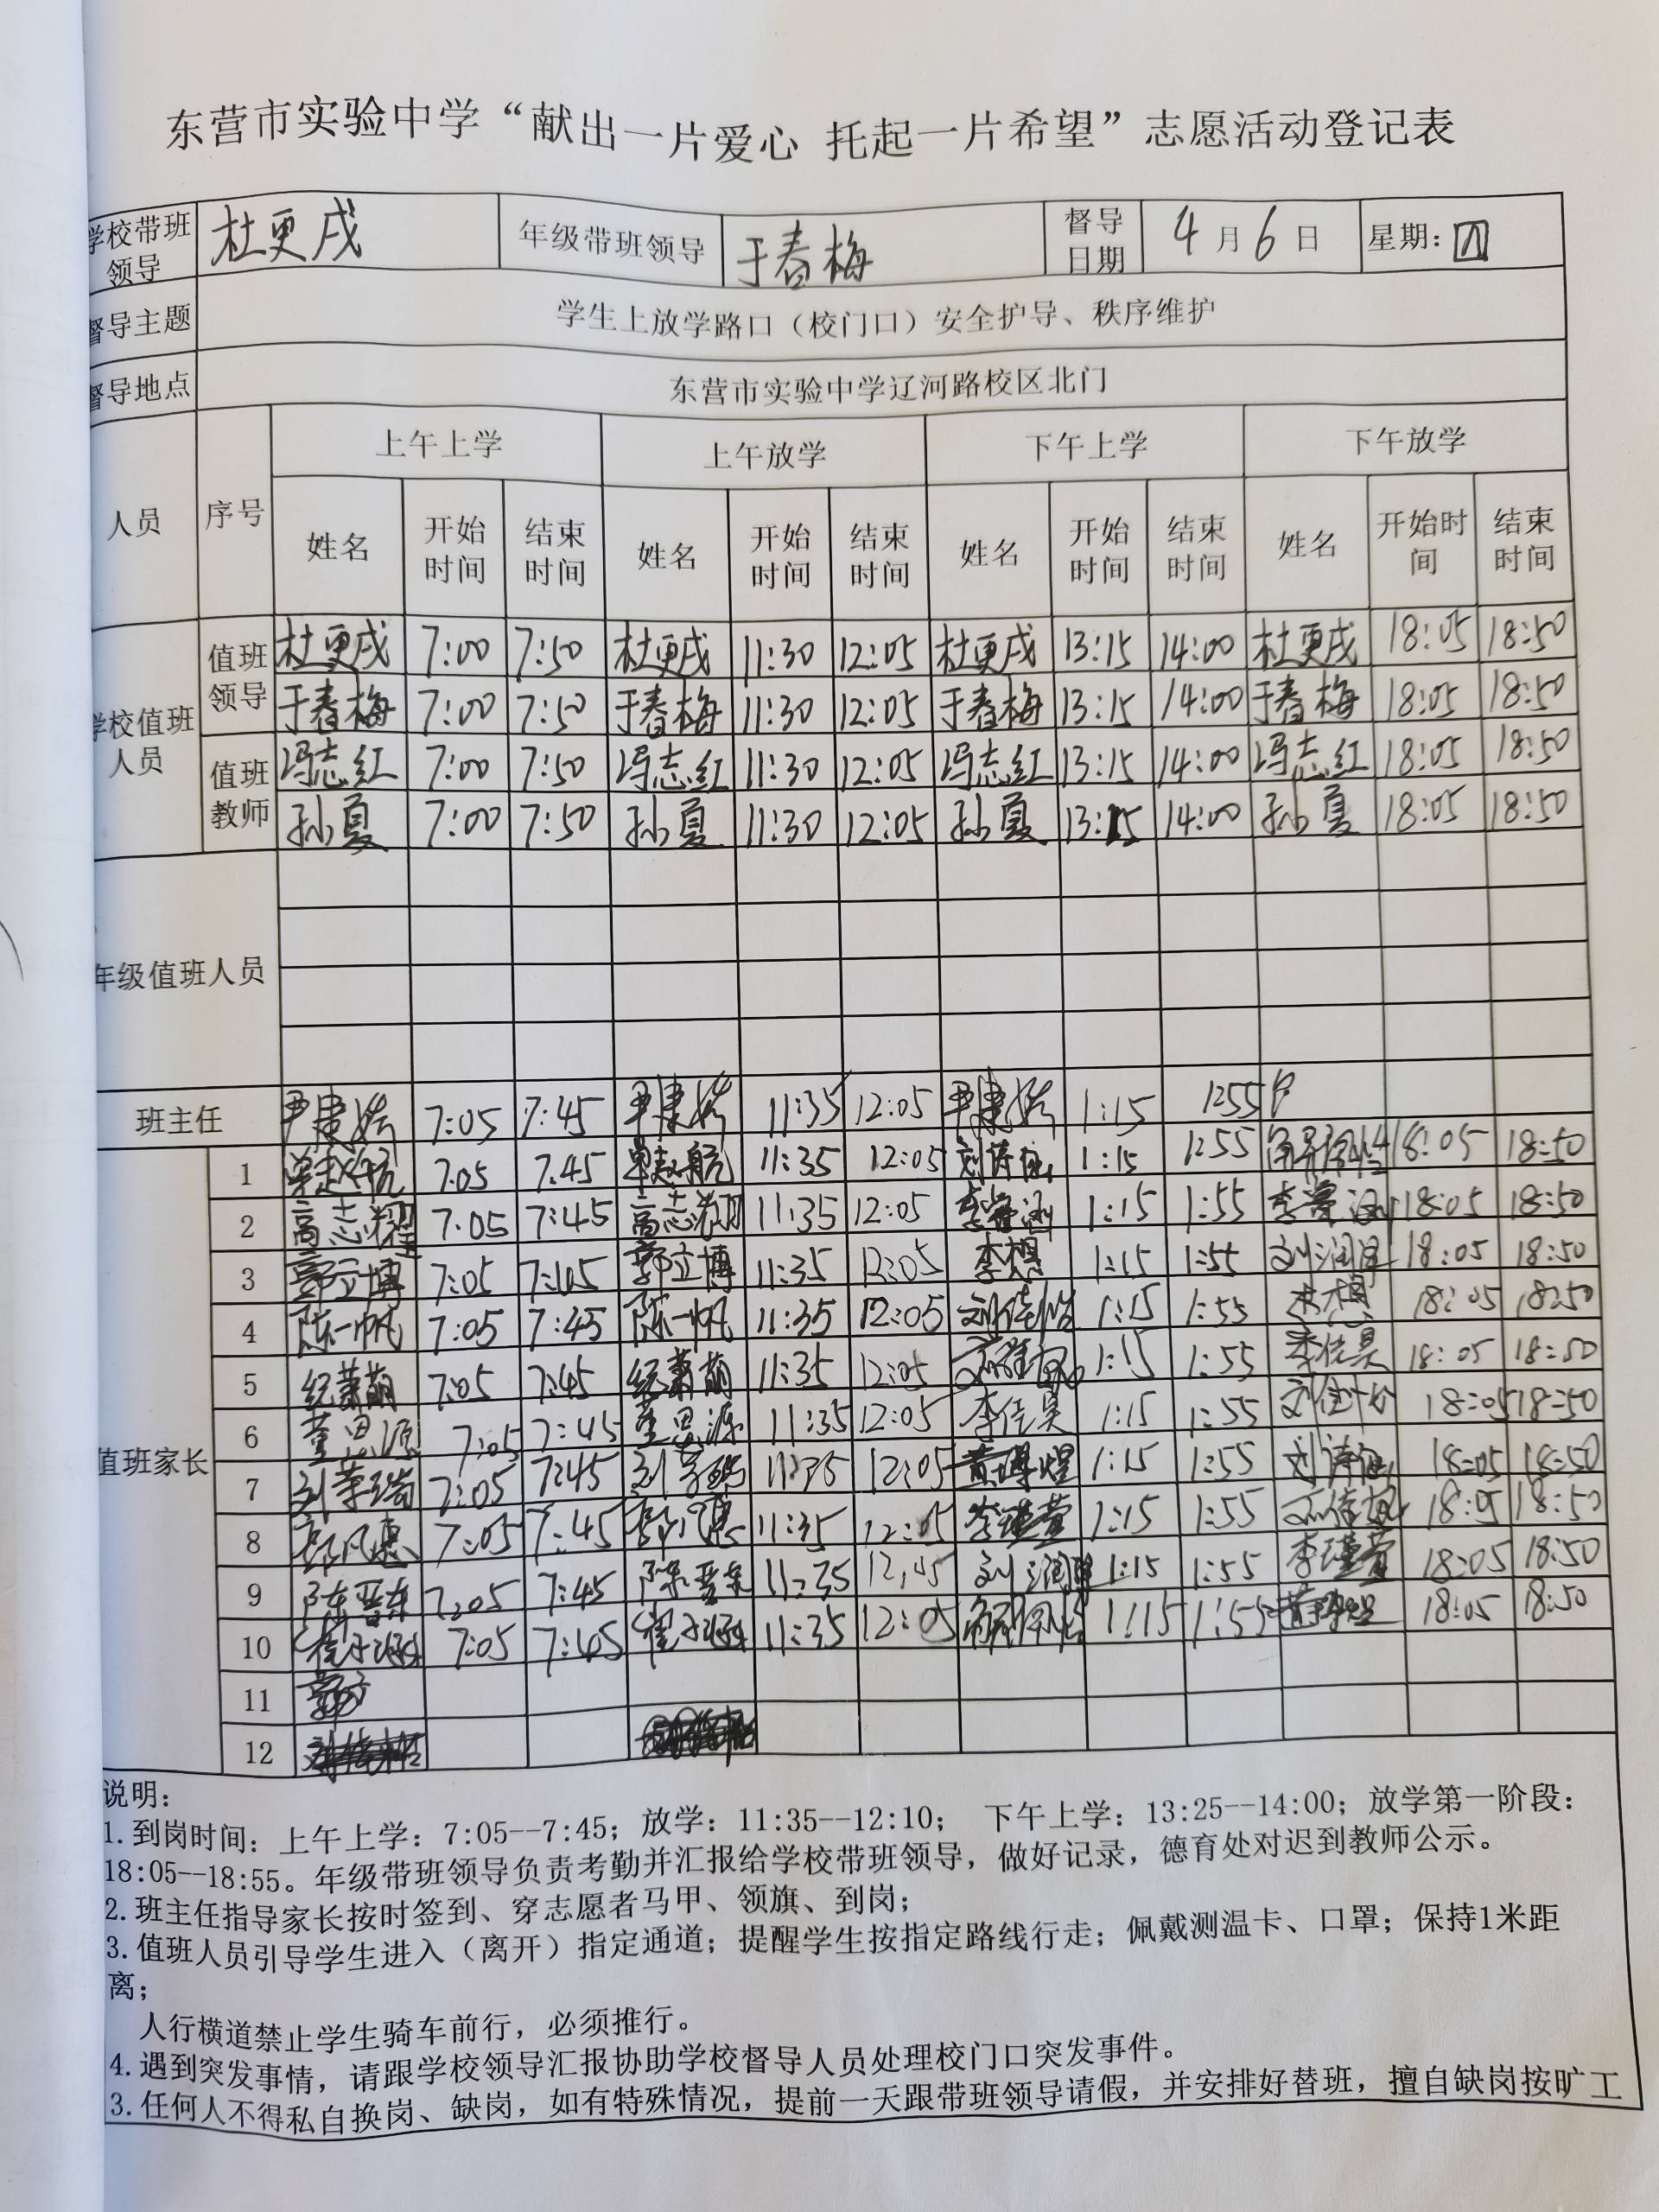 东营市实验中学“献出一片爱心 托起一片希望”志愿活动登记表
学校带班领导 杜更戌 年级带班领导 于春梅 督导日期 4月6日 星期：四
督导主题 学生上放学路口（校门口）安全护导、秩序维护
督导地点 东营市实验中学辽河路校区北门
人员 序号 上午上学 上午放学 下午上学 下午放学
姓名 开始时间 结束时间 姓名 开始时间 结束时间 姓名 开始时间 结束时间 姓名 开始时间 结束时间
学校值班人员
值班领导 杜更戌 7:00 7:50 杜更戌 11:30 12:05 杜更戌 13:15 14:00 杜更戌 18:05 18:50
于春梅 7:00 7:50 于春梅 11:30 12:05 于春梅 13:15 14:00 于春梅 18:05 18:50
值班教师 冯志红 7:00 7:50 冯志红 11:30 12:05 冯志红 13:15 14:00 冯志红 18:05 18:50
孙夏 7:00 7:50 孙夏 11:30 12:05 孙夏 13:15 14:00 孙夏 18:05 18:50
年级值班人员
班主任 7:05 7:45 11:35 12:05 1:15
值班家长
1 7:05 7:45 11:35 12:05 1:15 1:55 18:05 18:50
2 高志耀 7:05 7:45 高志耀 11:35 12:05 1:15 1:55 18:05 18:50
3 郭立博 7:05 郭立博 11:35 12:05 李想 1:15 1:55 18:05 18:50
4 陈一帆 7:05 7:45 陈一帆 11:35 12:05 1:15 1:55 李想 18:05 18:50
5 纪萧萌 7:05 7:45 纪萧萌 11:35 12:05 1:15 1:55 李佳昊 18:05 18:50
6 董思源 7:05 7:45 董思源 11:35 12:05 李佳昊 1:15 1:55 18:05 18:50
7 7:05 7:45 11:35 12:05 黄博煜 1:15 1:55 18:05 18:50
8 7:05 7:45 11:35 12:05 1:15 1:55 18:05 18:50
9 陈晋东 7:05 7:45 陈晋东 11:35 1:15 1:55 李瑾萱 18:05 18:50
10 崔子涵 7:05 7:45 崔子涵 11:35 12:05 1:15 1:55 18:05 18:50
11
12
说明：
1.到岗时间：上午上学：7:05--7:45；放学：11:35--12:10； 下午上学：13:25--14:00；放学第一阶段：
18:05--18:55。年级带班领导负责考勤并汇报给学校带班领导，做好记录，德育处对迟到教师公示。
2.班主任指导家长按时签到、穿志愿者马甲、领旗、到岗；
3.值班人员引导学生进入（离开）指定通道；提醒学生按指定路线行走；佩戴测温卡、口罩；保持1米距
离；
人行横道禁止学生骑车前行，必须推行。
4.遇到突发事情，请跟学校领导汇报协助学校督导人员处理校门口突发事件。
3.任何人不得私自换岗、缺岗，如有特殊情况，提前一天跟带班领导请假，并安排好替班，擅自缺岗按旷工